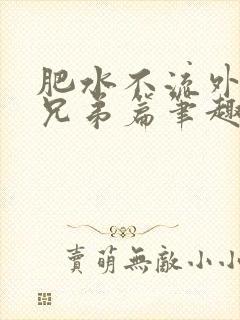 肥水不流外
兄弟篇筆趣
賣萌無敵小小